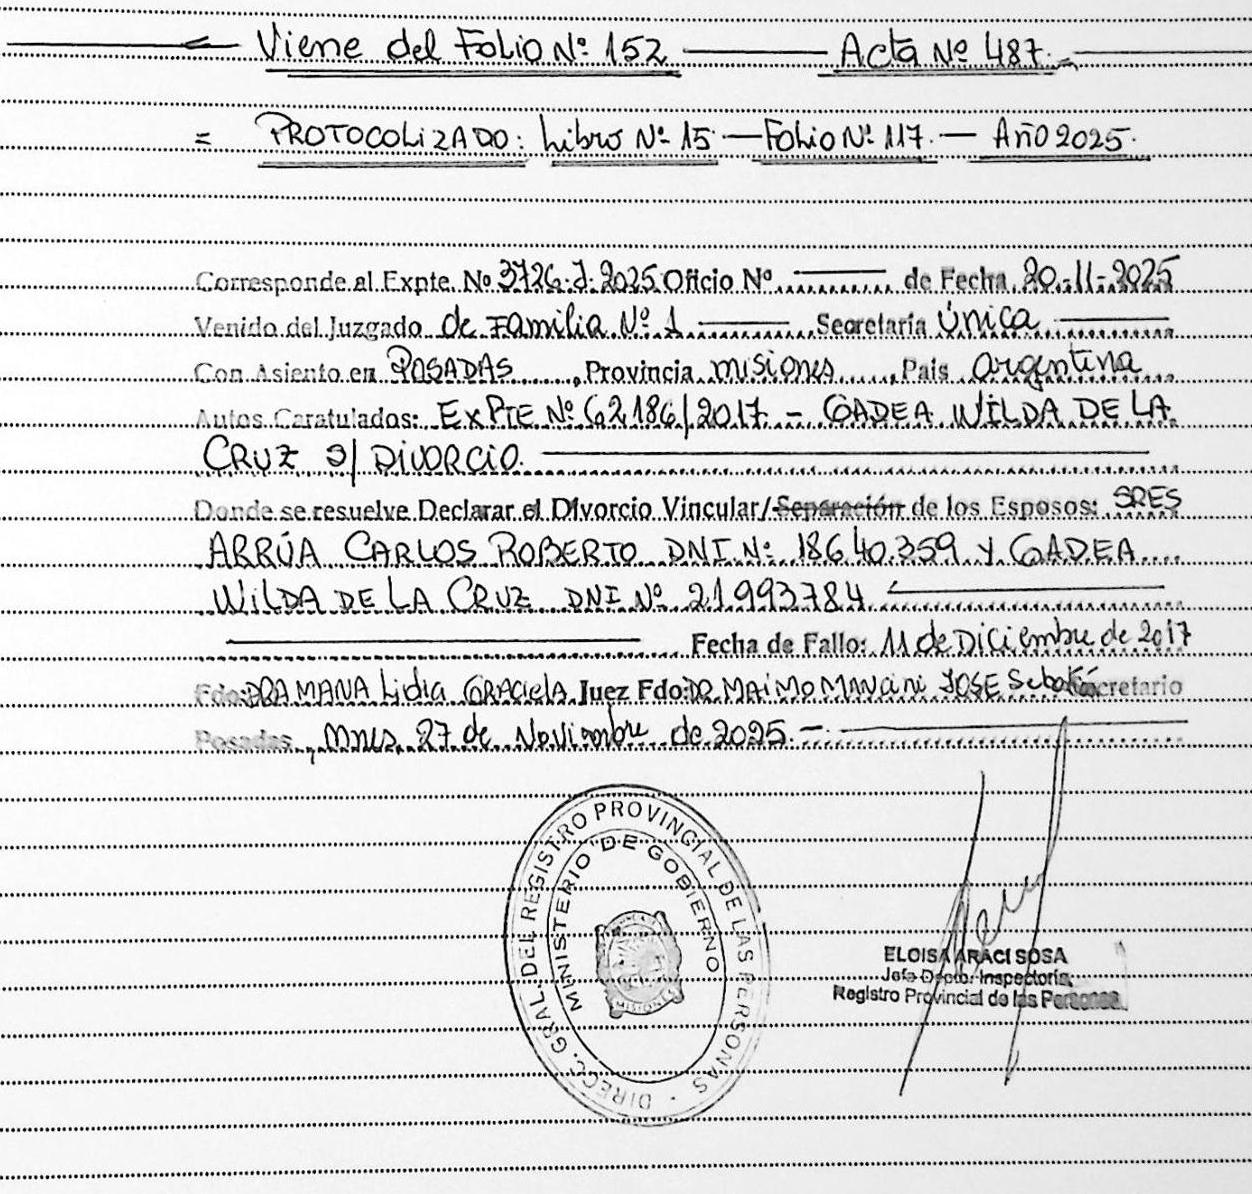 Viene del Folio Nº 152 — Acta Nº 487.-
= PROTOCOLIZADO: Libro Nº 15 — Folio Nº 117. — Año 2025.
Corresponde al Expte. Nº 3726-J-2025 Oficio Nº ——— de Fecha 20-11-2025
Venido del Juzgado de Familia Nº 1 ——— Secretaría Única ———
Con Asiento en POSADAS, Provincia misiones, País argentina
Autos Caratulados: EXPTE Nº 62186/2017 - GADEA WILDA DE LA
CRUZ S/ DIVORCIO. ———
Donde se resuelve Declarar el Divorcio Vincular/Separación de los Esposos: SRES
ARRÚA CARLOS ROBERTO DNI Nº 18640.359 Y GADEA
WILDA DE LA CRUZ DNI Nº 21.993784 ———
——— Fecha de Fallo: 11 de Diciembre de 2017
Fdo: DRA MANA Lidia GRACIELA Juez Fdo: DR MAIMO MANCINI JOSE Secretario
Posadas, Mnes, 27 de Noviembre de 2025.- ———
DIRECC. GRAL. DEL REGISTRO PROVINCIAL DE LAS PERSONAS
MINISTERIO DE GOBIERNO
MISIONES
ELOISA ARACI SOSA
Jefa Depto. Inspectoría
Registro Provincial de las Personas